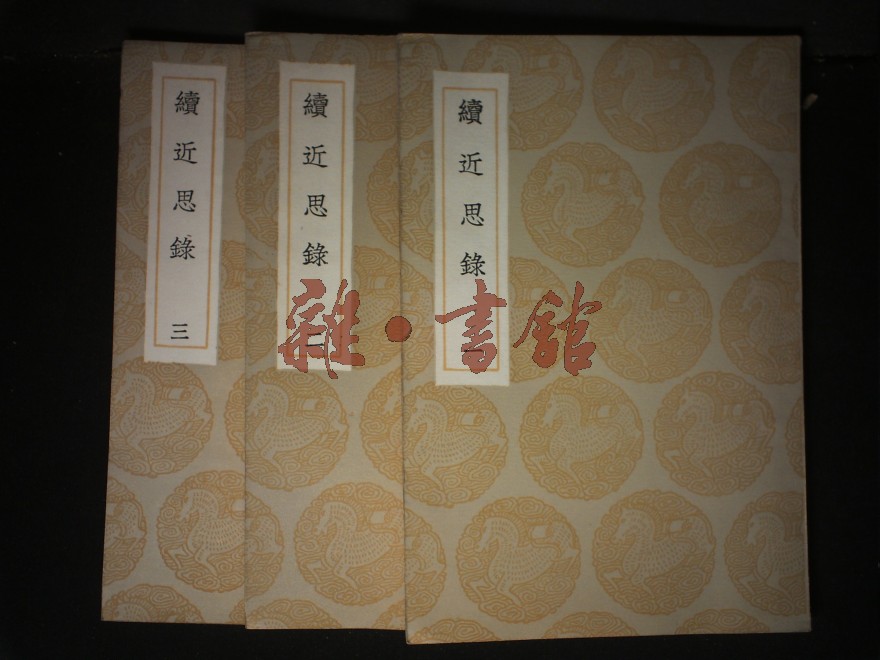 續近思錄 一
續近思錄 二
續近思錄 三
雜·書館